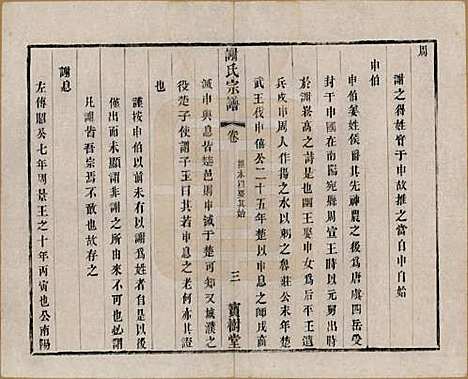 周
謝之得姓實于申故推之當自申自始
申伯
申伯姜姓侯爵其先神農之後也為唐虞四岳受
封于申國在南陽宛縣周宣王時以元舅出封
於謝崧高之詩是也幽王娶申女為后平王遣
兵戍申周人作揚之水以刺之魯莊公末年楚
武王伐申僖公二十五年楚以申息之師戍商
謝氏宗譜
卷
推本口要其始
三
寶樹堂
諴申與息皆楚邑則申滅于楚可知又城濮之
役楚子使謂子玉曰其若申息之老何亦其證
也
謹按申伯以前未有以謝為姓者自是以後
僅出而未顯謝非謝之所由來不可考也勿謂
凡謝皆吾宗焉不敢也故存之
謝息
左傳昭公七年周景王之十年丙寅也公南陽